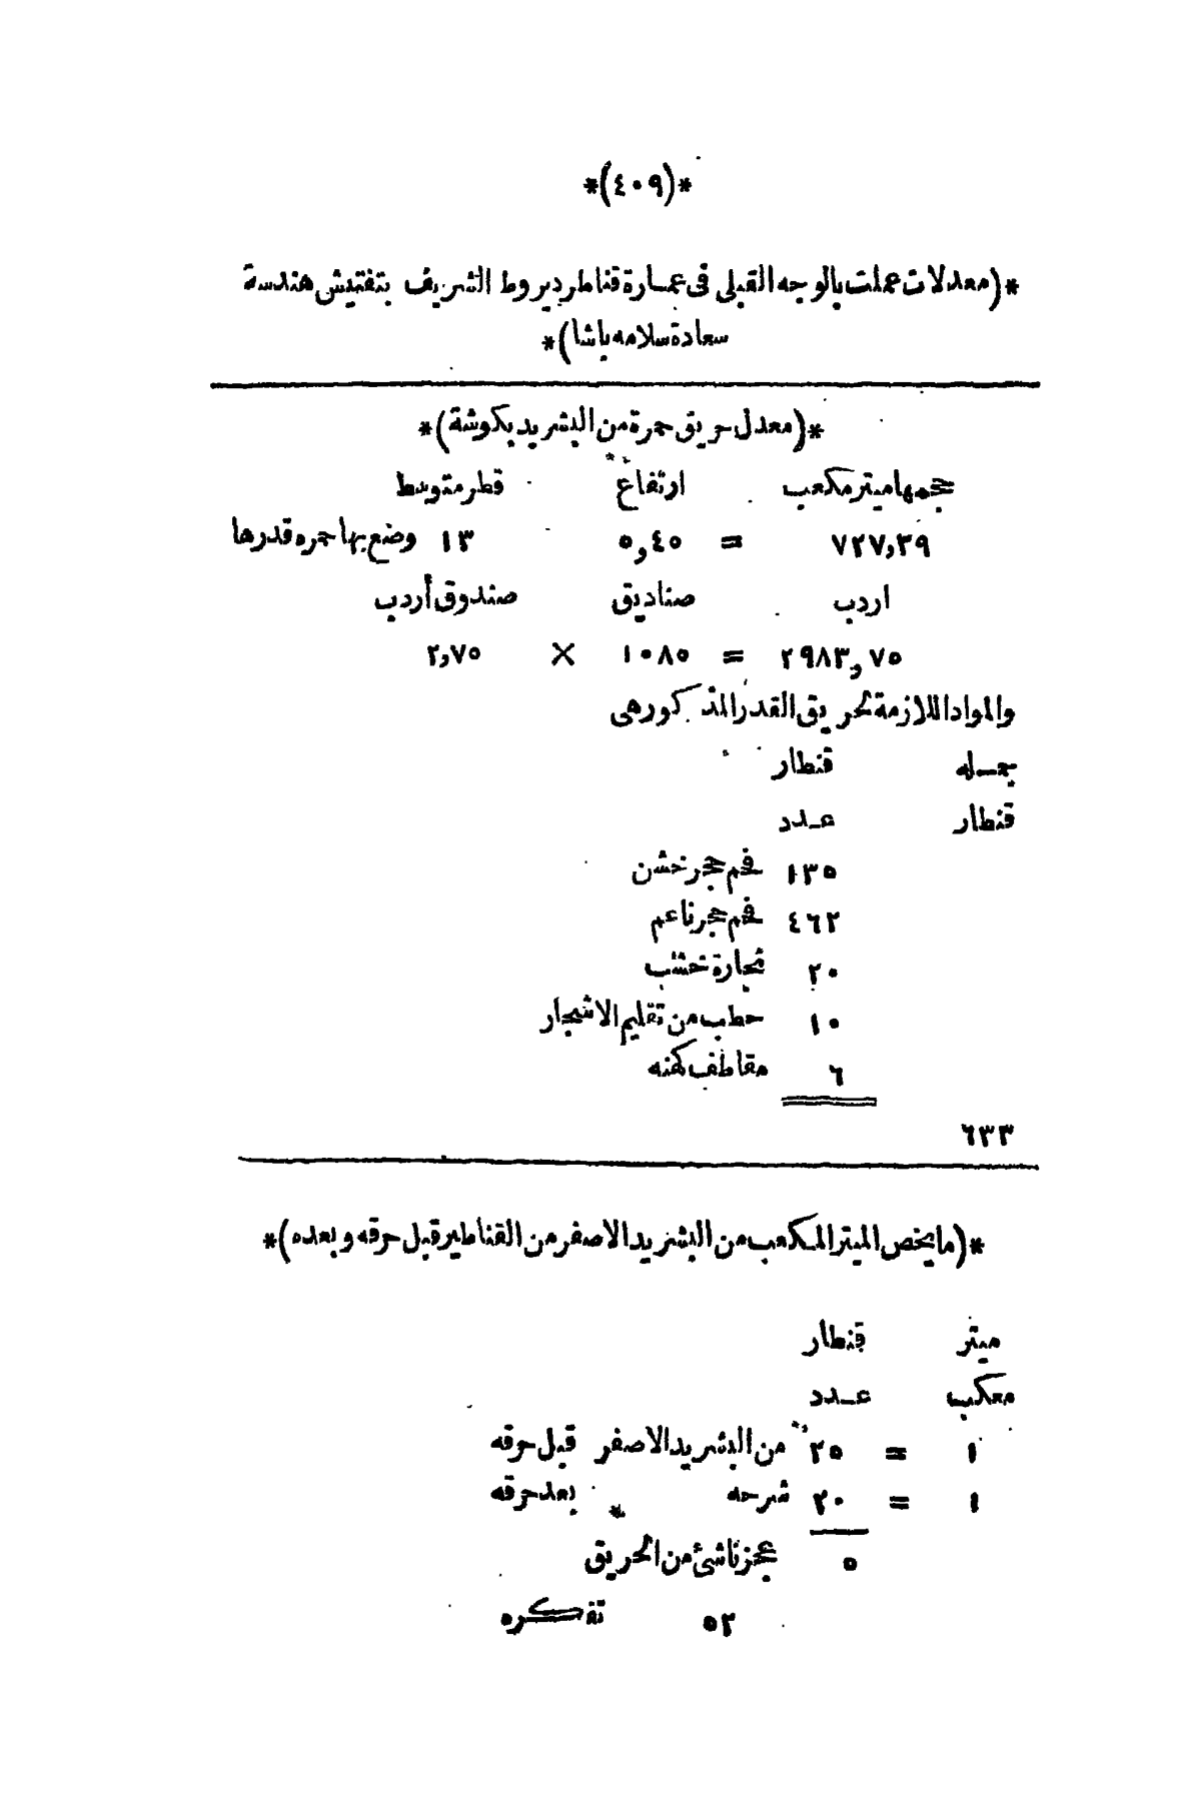 *(٤٠٩)*
*(معدلات عملت بالوجه القبلى فى عمارة قناطر ديروط الشريف بتفتيش هندسة
سعادة سلامه باشا)*
*(معدل حريق حمرة من البشريد بكوشة)*
حجمها ميتر مكعب ارتفاع قطر متوسط
٧٢٧,٣٩ = ٥,٤٠ ١٣ وضع بها حمره قدرها
اردب صناديق صندوق أردب
٢٩٨٣,٧٥ = ١٠٨٥ × ٢,٧٥
والمواد اللازمة لحريق القدر المذكور هى
جمله قنطار
قنطار عدد
١٣٥ فحم حجر خشن
٤٦٢ فحم حجر ناعم
٢٠ نجارة خشب
١٠ حطب من تقليم الاشجار
٦ مقاطف كهنه
٦٣٣
*(ما يخص الميتر المكعب من البشريد الاصفر من القناطير قبل حرقه وبعده)*
ميتر قنطار
معكب عدد
١ = ٢٥ من البشريد الاصفر قبل حرقه
١ = ٢٠ شرحه بعد حرقه
٥ عجز ناشئ من الحريق
٥٢ تفكره